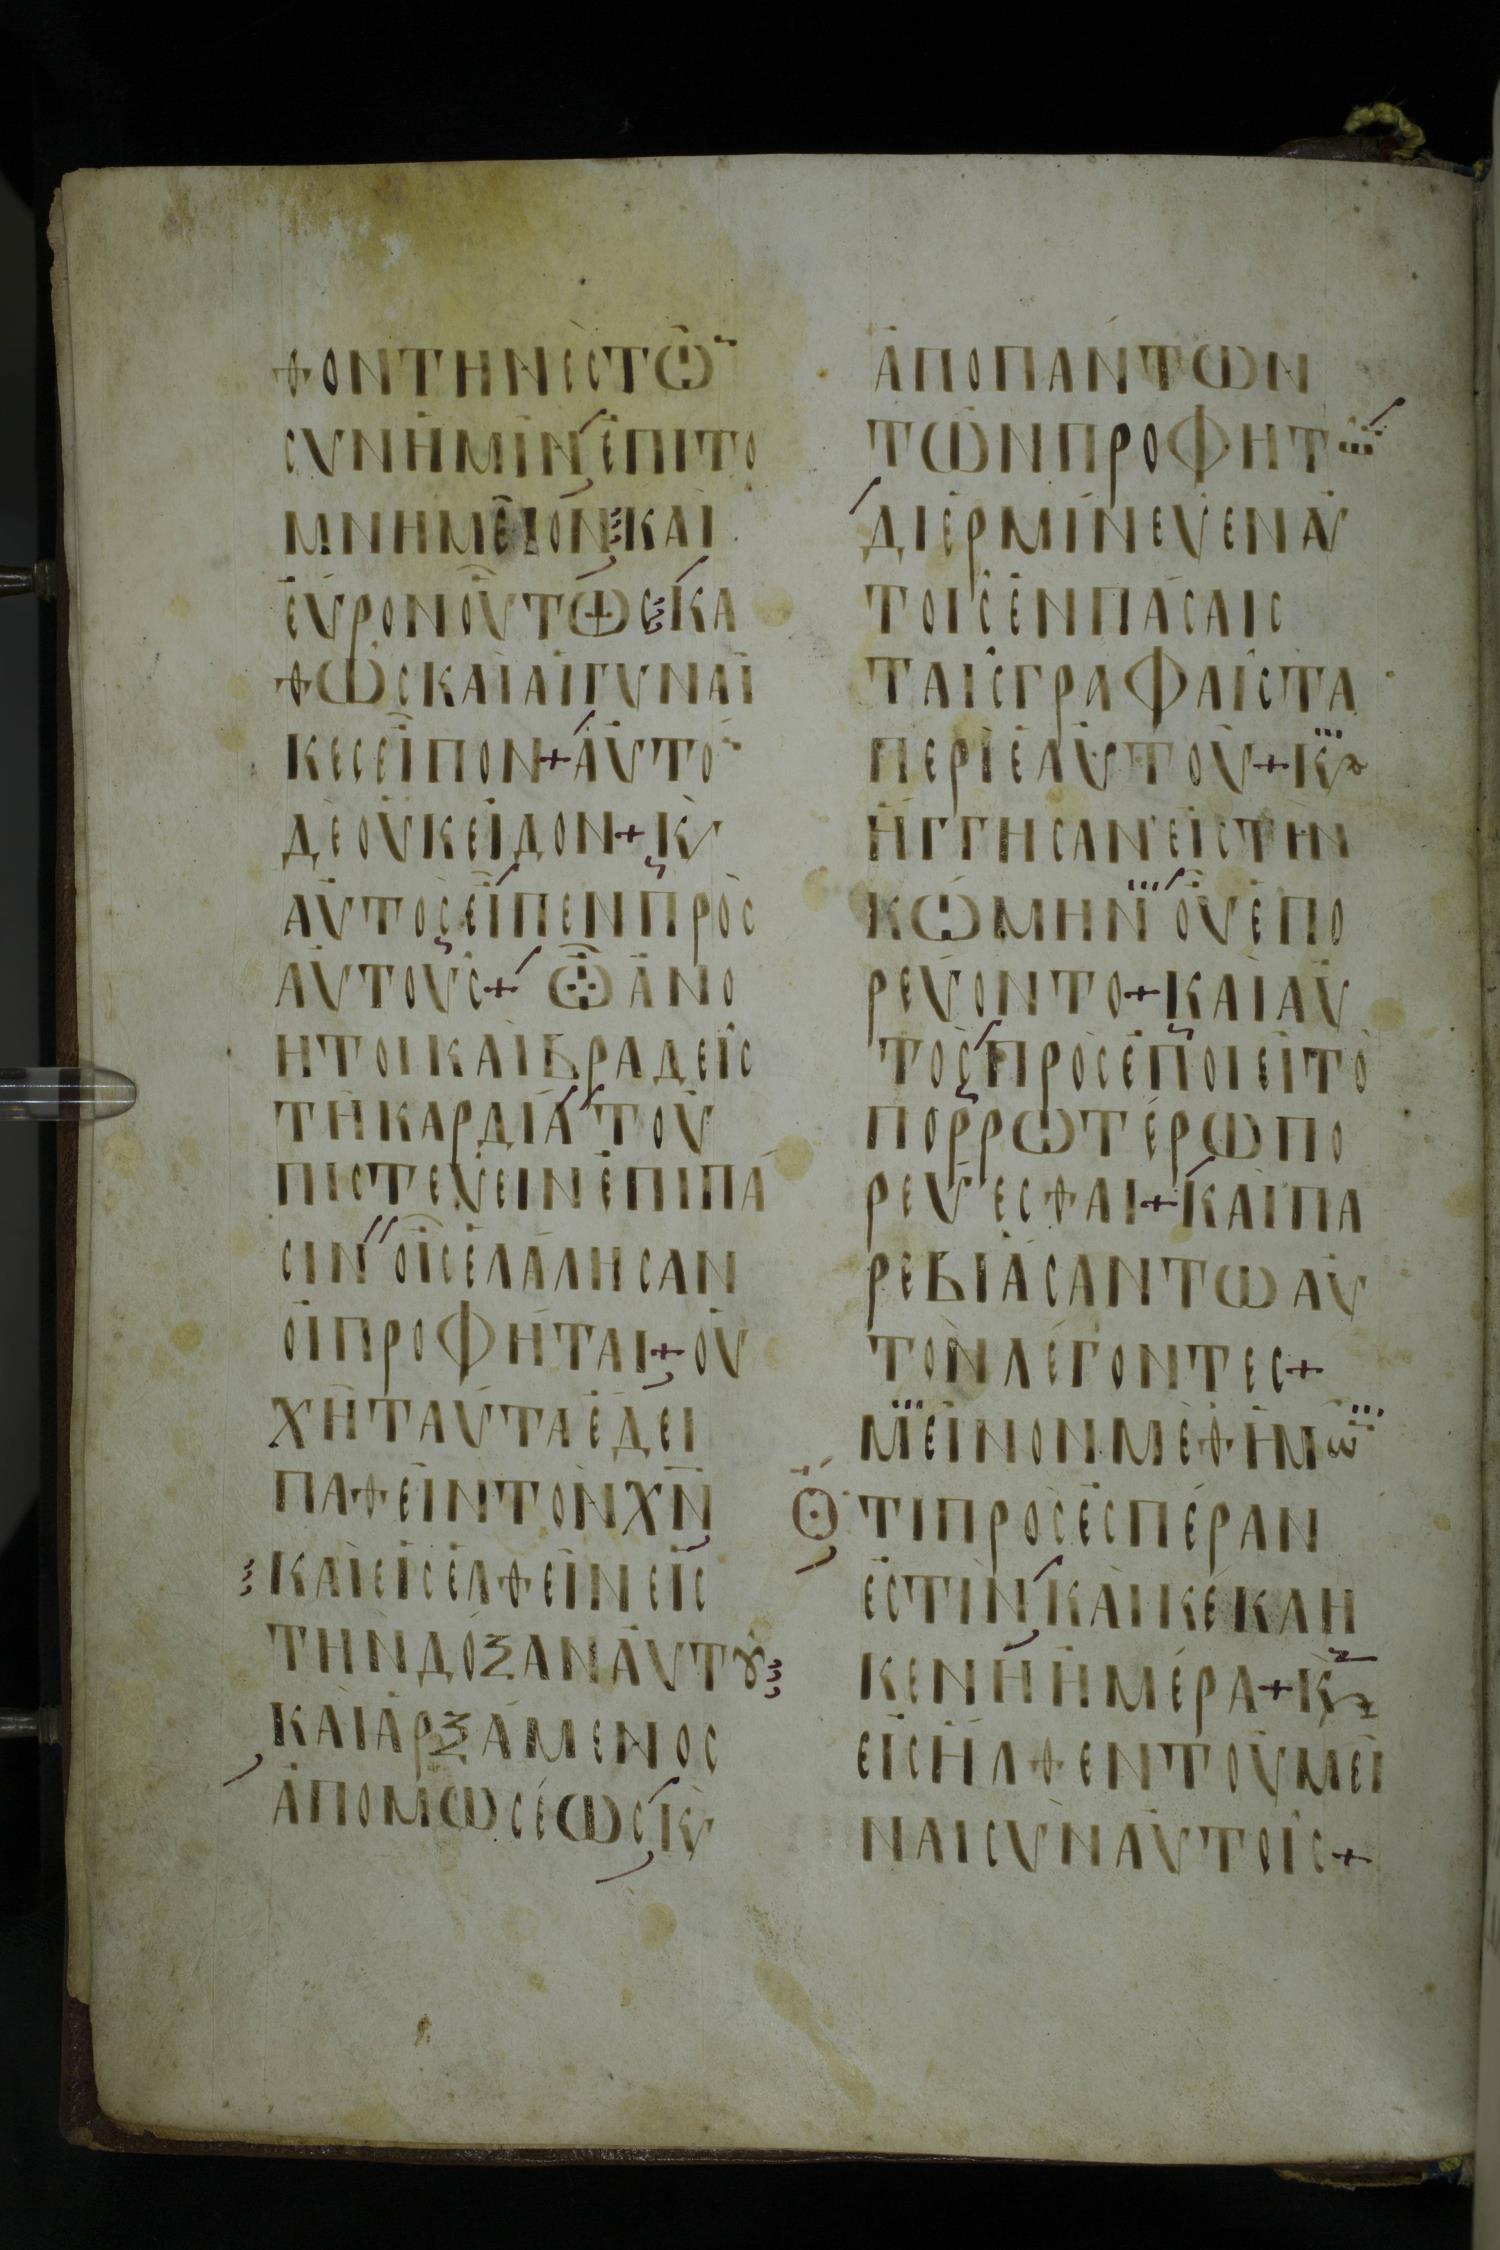 θΟΝΤΗΝΕCΤῶ
CΥΝΗΜΙΝΕΠΙΤΟ
ΜΝΗΜΕΙΟΝΚΑΙ
ΕΥΡΟΝΟΥΤΩCΚΑ
θΩCΚΑΙΑΙΓΥΝΑΙ
ΚΕCΕΙΠΟΝ+ΑΥΤΟ
ΔΕΟΥΚΕΙΔΟΝ+Κ
ΑΥΤΟCΕΙΠΕΝΠΡΟC
ΑΥΤΟΥC+ΩΑΝΟ
ΗΤΟΙΚΑΙΒΡΑΔΕΙC
ΤΗΚΑΡΔΙΑΤΟΥ
ΠΙCΤΕΥΕΙΝΕΠΙΠΑ
CΙΝΟΙCΕΛΑΛΗCΑΝ
ΟΙΠΡΟΦΗΤΑΙ+ΟΥ
ΧΗΤΑΥΤΑΕΔΕΙ
ΠΑθΕΙΝΤΟΝΧΝ
ΚΑΙΕΙCΕΛθΕΙΝΕΙC
ΤΗΝΔΟΞΑΝΑΥΤȣ
ΚΑΙΑΡΞΑΜΕΝΟC
ΑΠΟΜΩCΕΩCΚ
ΑΠΟΠΑΝΤΩΝ
ΤΩΝΠΡΟΦΗΤω
ΔΙΕΡΜΙΝΕΥΕΝΑΥ
ΤΟΙCΕΝΠΑCΑΙC
ΤΑΙCΓΡΑΦΑΙCΤΑ
ΠΕΡΙΕΑΥΤΟΥ+Κ
ΗΓΓΗCΑΝΕΙCΤΗΝ
ΚΩΜΗΝΟΥΕΠΟ
ΡΕΥΟΝΤΟ+ΚΑΙΑΥ
ΤΟCΠΡΟCΕΠΟΙΕΙΤΟ
ΠΟΡΡΩΤΕΡΩΠΟ
ΡΕΥΕCθΑΙ+ΚΑΙΠΑ
ΡΕΒΙΑCΑΝΤΩΑΥ
ΤΟΝΛΕΓΟΝΤΕC+
ΜΕΙΝΟΝΜΕθΙΜω
ΟΤΙΠΡΟCΕCΠΕΡΑΝ
ΕCΤΙΝΚΑΙΚΕΚΛΗ
ΚΕΝΗΗΜΕΡΑ+Κ
ΕΙCΗΛθΕΝΤΟΥΜΕΙ
ΝΑΙCΥΝΑΥΤΟΙC+